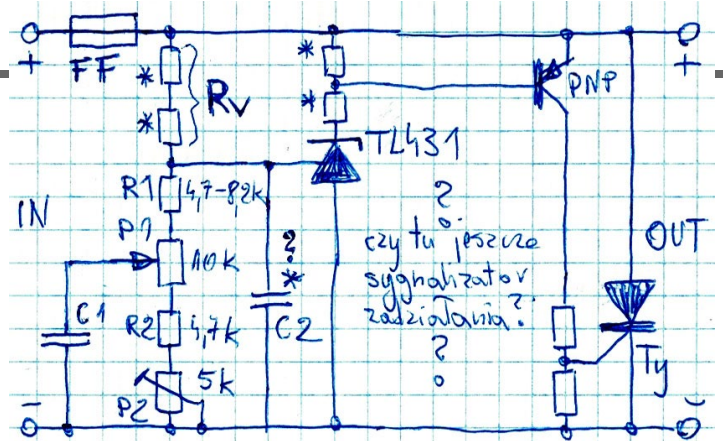 +
FF
*
*
Rv
*
*
PNP
+
TL431
R1 4,7-8,2k
IN
P1
10k
?
*
C1
C2
R2 4,7k
P2
5k
?
czy tu jeszcze
sygnalizator
zadziałania?
?
OUT
Ty
-
-